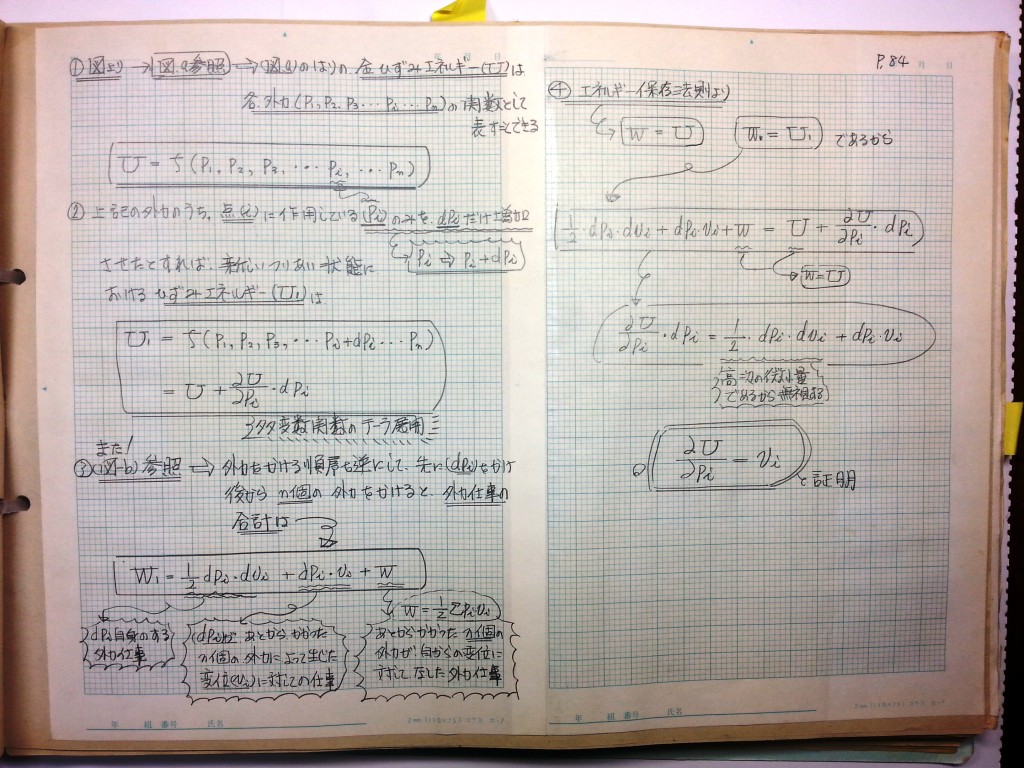 ①図より → 図.a参照 ⇒ (図.a)のはりの 全ひずみエネルギー(U)は
各.外力(P1,P2,P3・・・Pi・・・Pn)の関数として
表すことできる
U = f(P1, P2, P3, ・・・Pi, ・・・Pn)
② 上記の外力のうち、点(i)に作用している(Pi)のみを、dPiだけ増加
Pi ⇒ Pi+dPi
させたとすれば、新しいつりあい状態に
おける ひずみエネルギー(U1)は
U1 = f(P1, P2, P3, ・・・Pi+dPi・・・Pn)
= U + ∂U/∂Pi・dPi
多変数関数のテーラ展開
また!
③(図-b)参照 ⇒ 外力をかける順序を逆にして、先に(dPi)をかけ
後から n個の 外力をかけると、外力仕事の
合計は
W1 = 1/2 dPi・dvi + dPi・vi + W
W = 1/2 ΣPivi
dPi自身のする
外力仕事
(dPi)が あとから かかった
n個の 外力に よって生じた
変位(vi)に対しての仕事
あとからかかった n個の
外力が 自からの変位に
対して なした 外力仕事
年 組 番号 氏名
P.84 月 日
④ エネルギー保存法則より
W = U W1 = U1 であるから
1/2・dPi・dvi + dPi・vi + W = U + ∂U/∂Pi・dPi
W=U
∂U/∂Pi・dPi = 1/2・dPi・dvi + dPi・vi
高次の微小量
であるから無視する
∂U/∂Pi = vi
と証明
年 組 番号 氏名